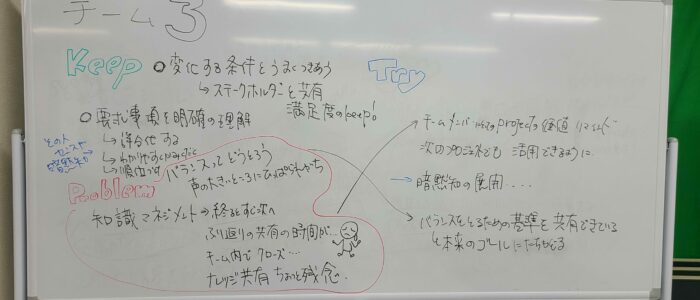 チーム3
Keep
○変化する条件とうまくつきあう
↳ステークホルダーと共有
満足度のkeep!
○要求事項を明確の理解
↳詳細化する
その人
センスや
暗黙知
Problem
バランスってどうとろう
声の大きいところにひっぱられがち
知識マネジメント→終ると すぐ次へ
ふり返りの共有の時間が…
チーム内でクローズ…
ナレッジ共有 ちょっと残念…
Try
チームメンバーにとってのprojectの価値
次のプロジェクトでも 活用できるように
→暗黙知の展開....
バランスをとるための基準を共有できている
本来のゴールにたちもどる